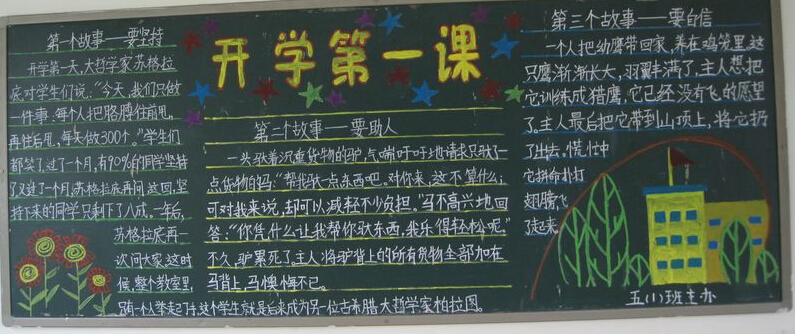 开学第一课
第一个故事——要坚持
开学第一天,大哲学家苏格拉
底对学生们说:“今天,我们只做
一件事:每个人把胳膊往前甩,
再往后甩,每天做300个。”学生们
都笑了过了一个月,有90%的同学坚持
了又过了一个月,苏格拉底再问这回,坚
持下来的同学只剩下了八成。一年后,
苏格拉底再一
次问大家,这时
候,整个教室里,
只有一个人举起了手,这个学生就是后来成为另一位古希腊大哲学家柏拉图。
第二个故事——要助人
一头驮着沉重货物的驴,气喘吁吁地请求只驮了一
点货物的马:“帮我驮一点东西吧。对你来,这不算什么;
可对我来说,却可以减轻不少负担。”马不高兴地回
答:“你凭什么让我帮你驮东西,我乐得轻松呢。”
不久,驴累死了,主人将驴背上的所有货物全部加在
马背上,马懊悔不已。
第三个故事——要自信
一个人把幼鹰带回家,养在鸡笼里,这
只鹰渐渐长大,羽翼丰满了,主人想把
它训练成猎鹰,它已经没有飞的愿望
了,主人最后把它带到山顶上,将它扔
了出去。慌忙中
它拼命扑打
翅膀,飞
了起来
五(1)班主办